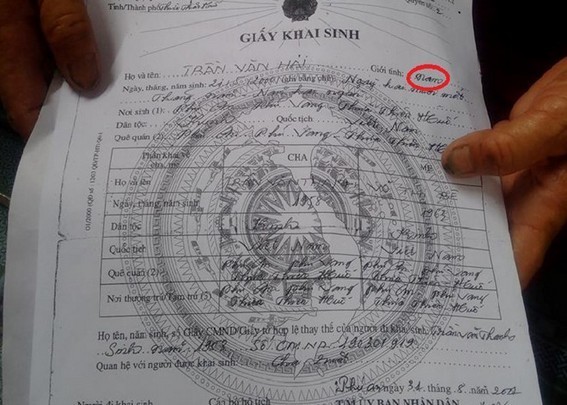 Tỉnh/Thành phố Thừa Thiên Huế
Quyển số:
GIẤY KHAI SINH
Họ và tên: TRẦN VĂN HẢI Giới tính: Nam
Ngày, tháng, năm sinh: 21.5.2000 (ghi bằng chữ) Ngày hai mươi mốt
Tháng năm Năm hai ngàn
Nơi sinh (1): Phú An Phú Vang Thừa Thiên Huế
Dân tộc: Kinh Quốc tịch Việt Nam
Quê quán (2): Phú An - Phú Vang - Thừa Thiên Huế
Phần khai về cha, mẹ CHA MẸ
Họ và tên TRẦN VĂN BÉ
Ngày, tháng, năm sinh 1958 1963
Dân tộc Kinh Kinh
Quốc tịch Việt Nam Việt Nam
Quê quán (2) Phú An Phú Vang Thừa Thiên Huế Phú An Phú Vang Thừa Thiên Huế
Nơi thường trú/Tạm trú (5) Phú An Phú Vang Thừa Thiên Huế Phú An Phú Vang Thừa Thiên Huế
Họ tên, năm sinh, số Giấy CMND/Giấy tờ hợp lệ thay thế của người đi khai sinh: Trần Văn
Sinh năm Số CMND
Quan hệ với người được khai sinh: Cha
Phú An, ngày 31 tháng 8 năm 2012
Người đi khai sinh Cán bộ hộ tịch T.M ỦY BAN NHÂN DÂN